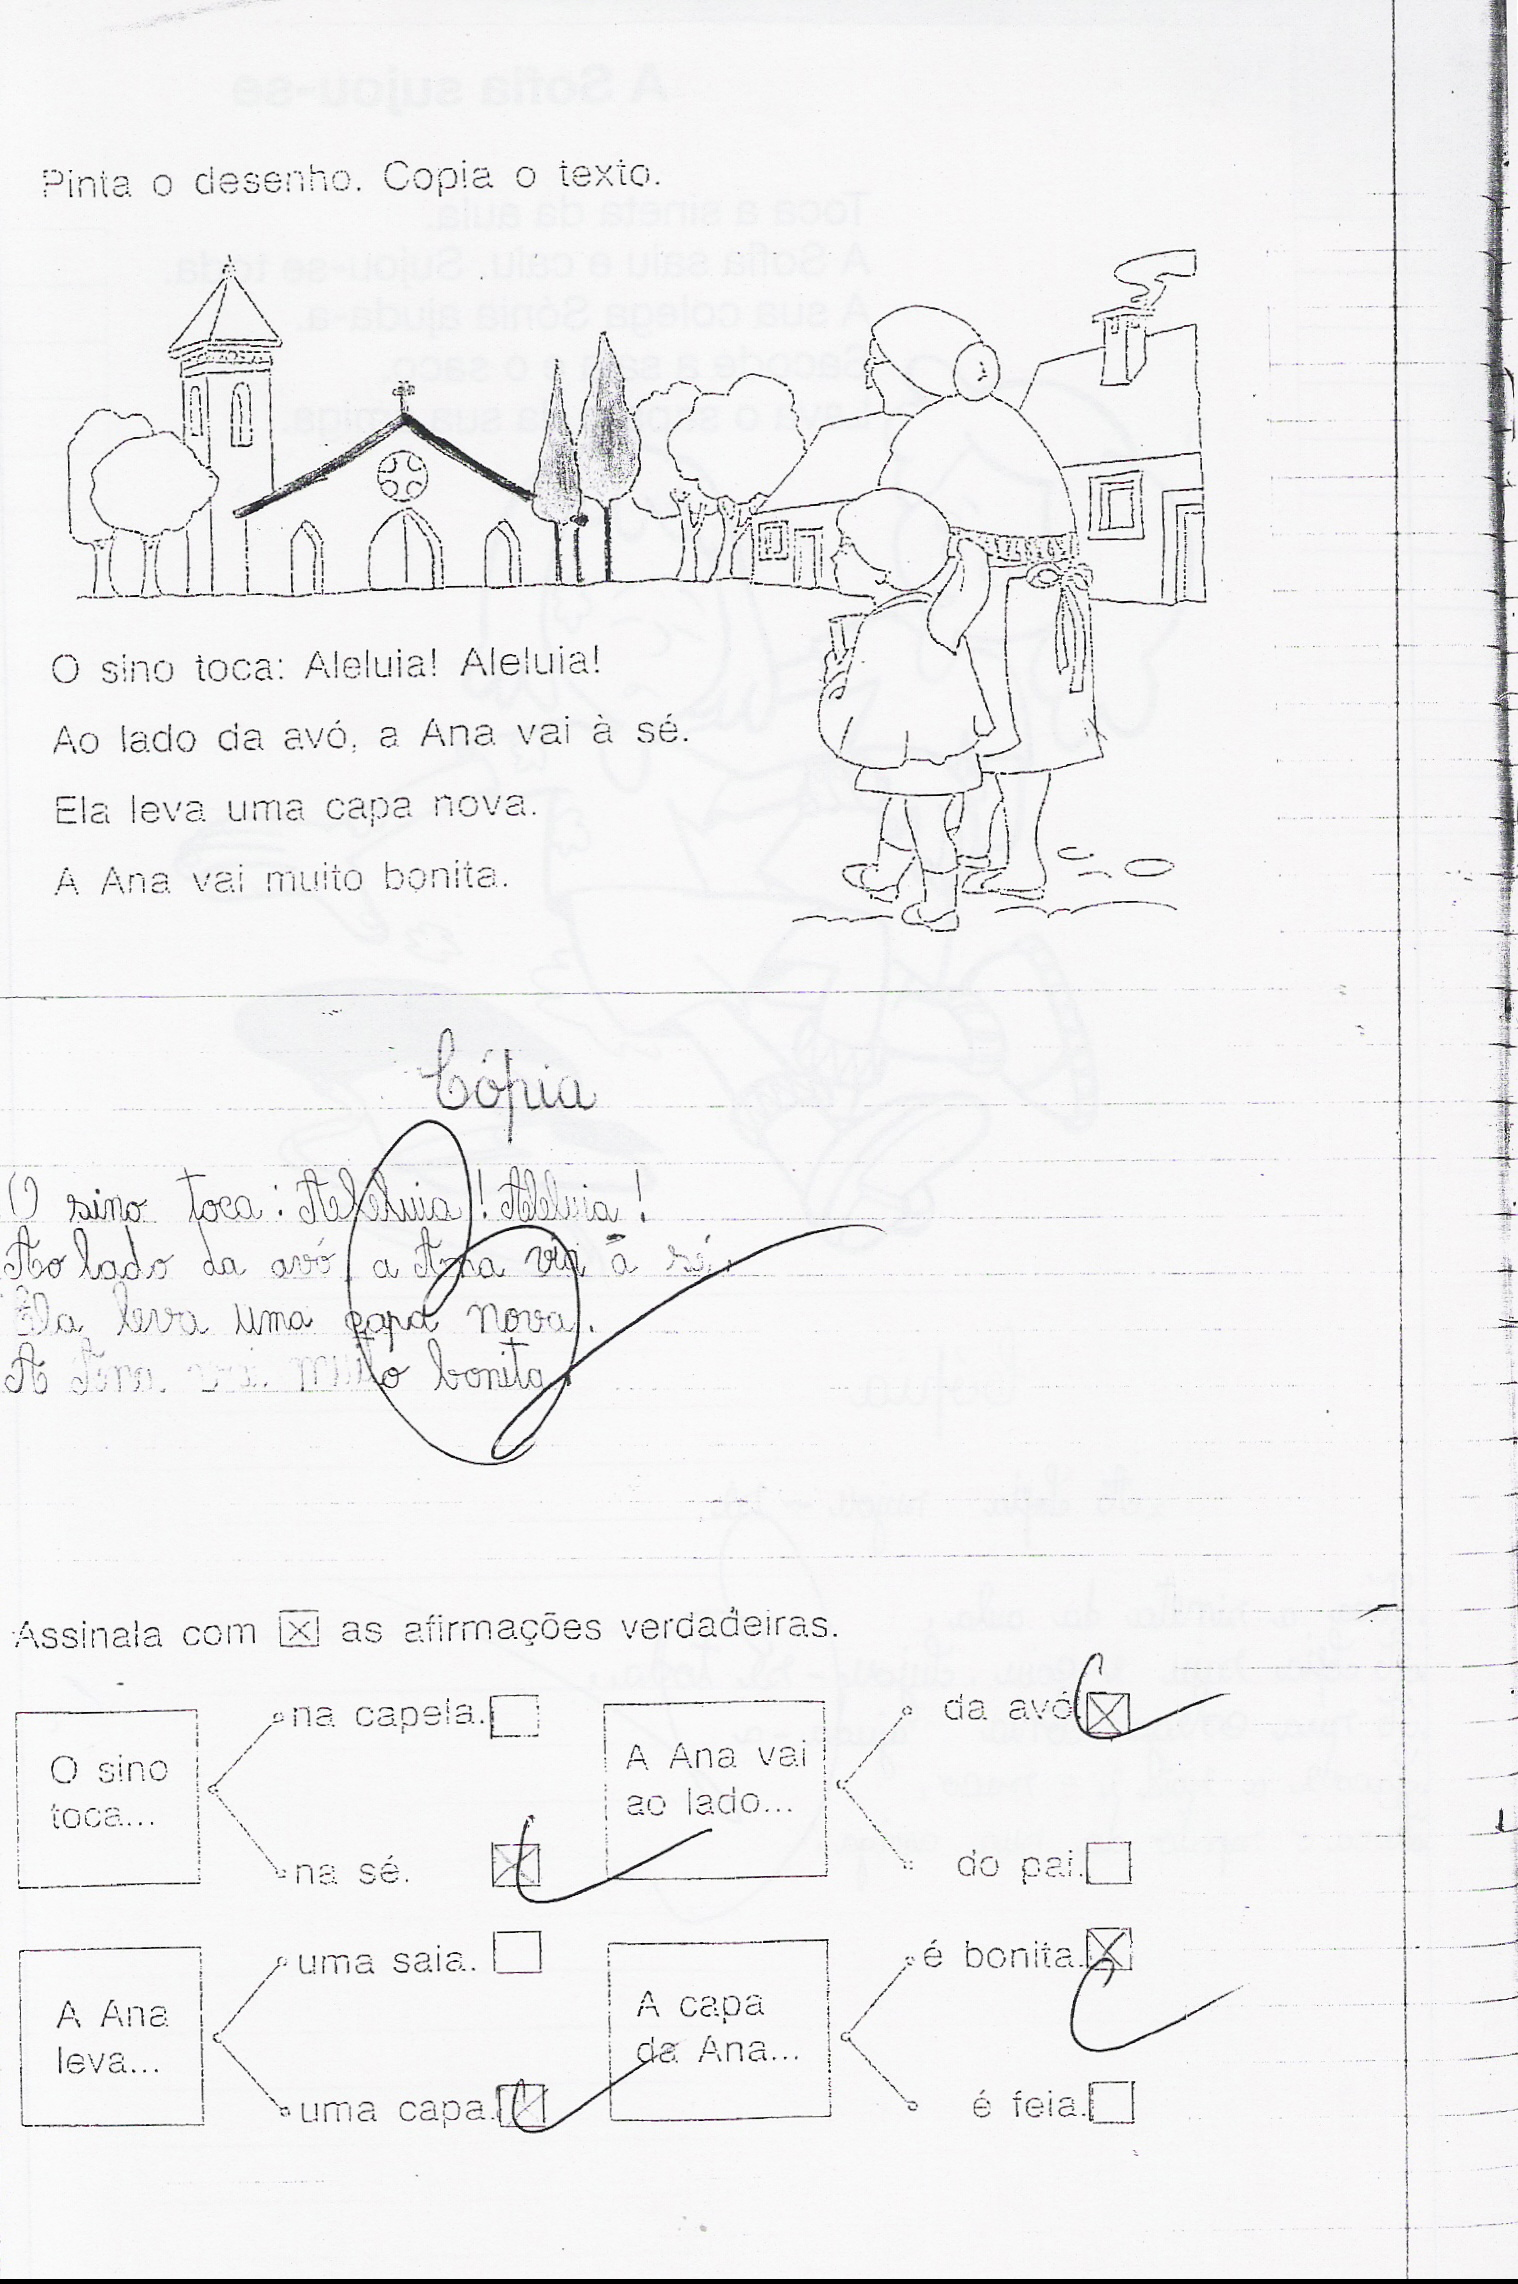 Pinta o desenho. Copia o texto.
O sino toca: Aleluia! Aleluia!
Ao lado da avó, a Ana vai à sé.
Ela leva uma capa nova.
A Ana vai muito bonita.
Cópia
O sino toca: Aeleluia! Aleluia!
Ao lado da avó, a Ana via à sé.
Ela leva uma capa nova.
A Ana vai muito bonita.
Assinala com ☒ as afirmações verdadeiras.
O sino
toca...
na capela.
na sé.
A Ana vai
ao lado...
da avó.
do pai.
A Ana
leva...
uma saia.
uma capa.
A capa
da Ana...
é bonita.
é feia.